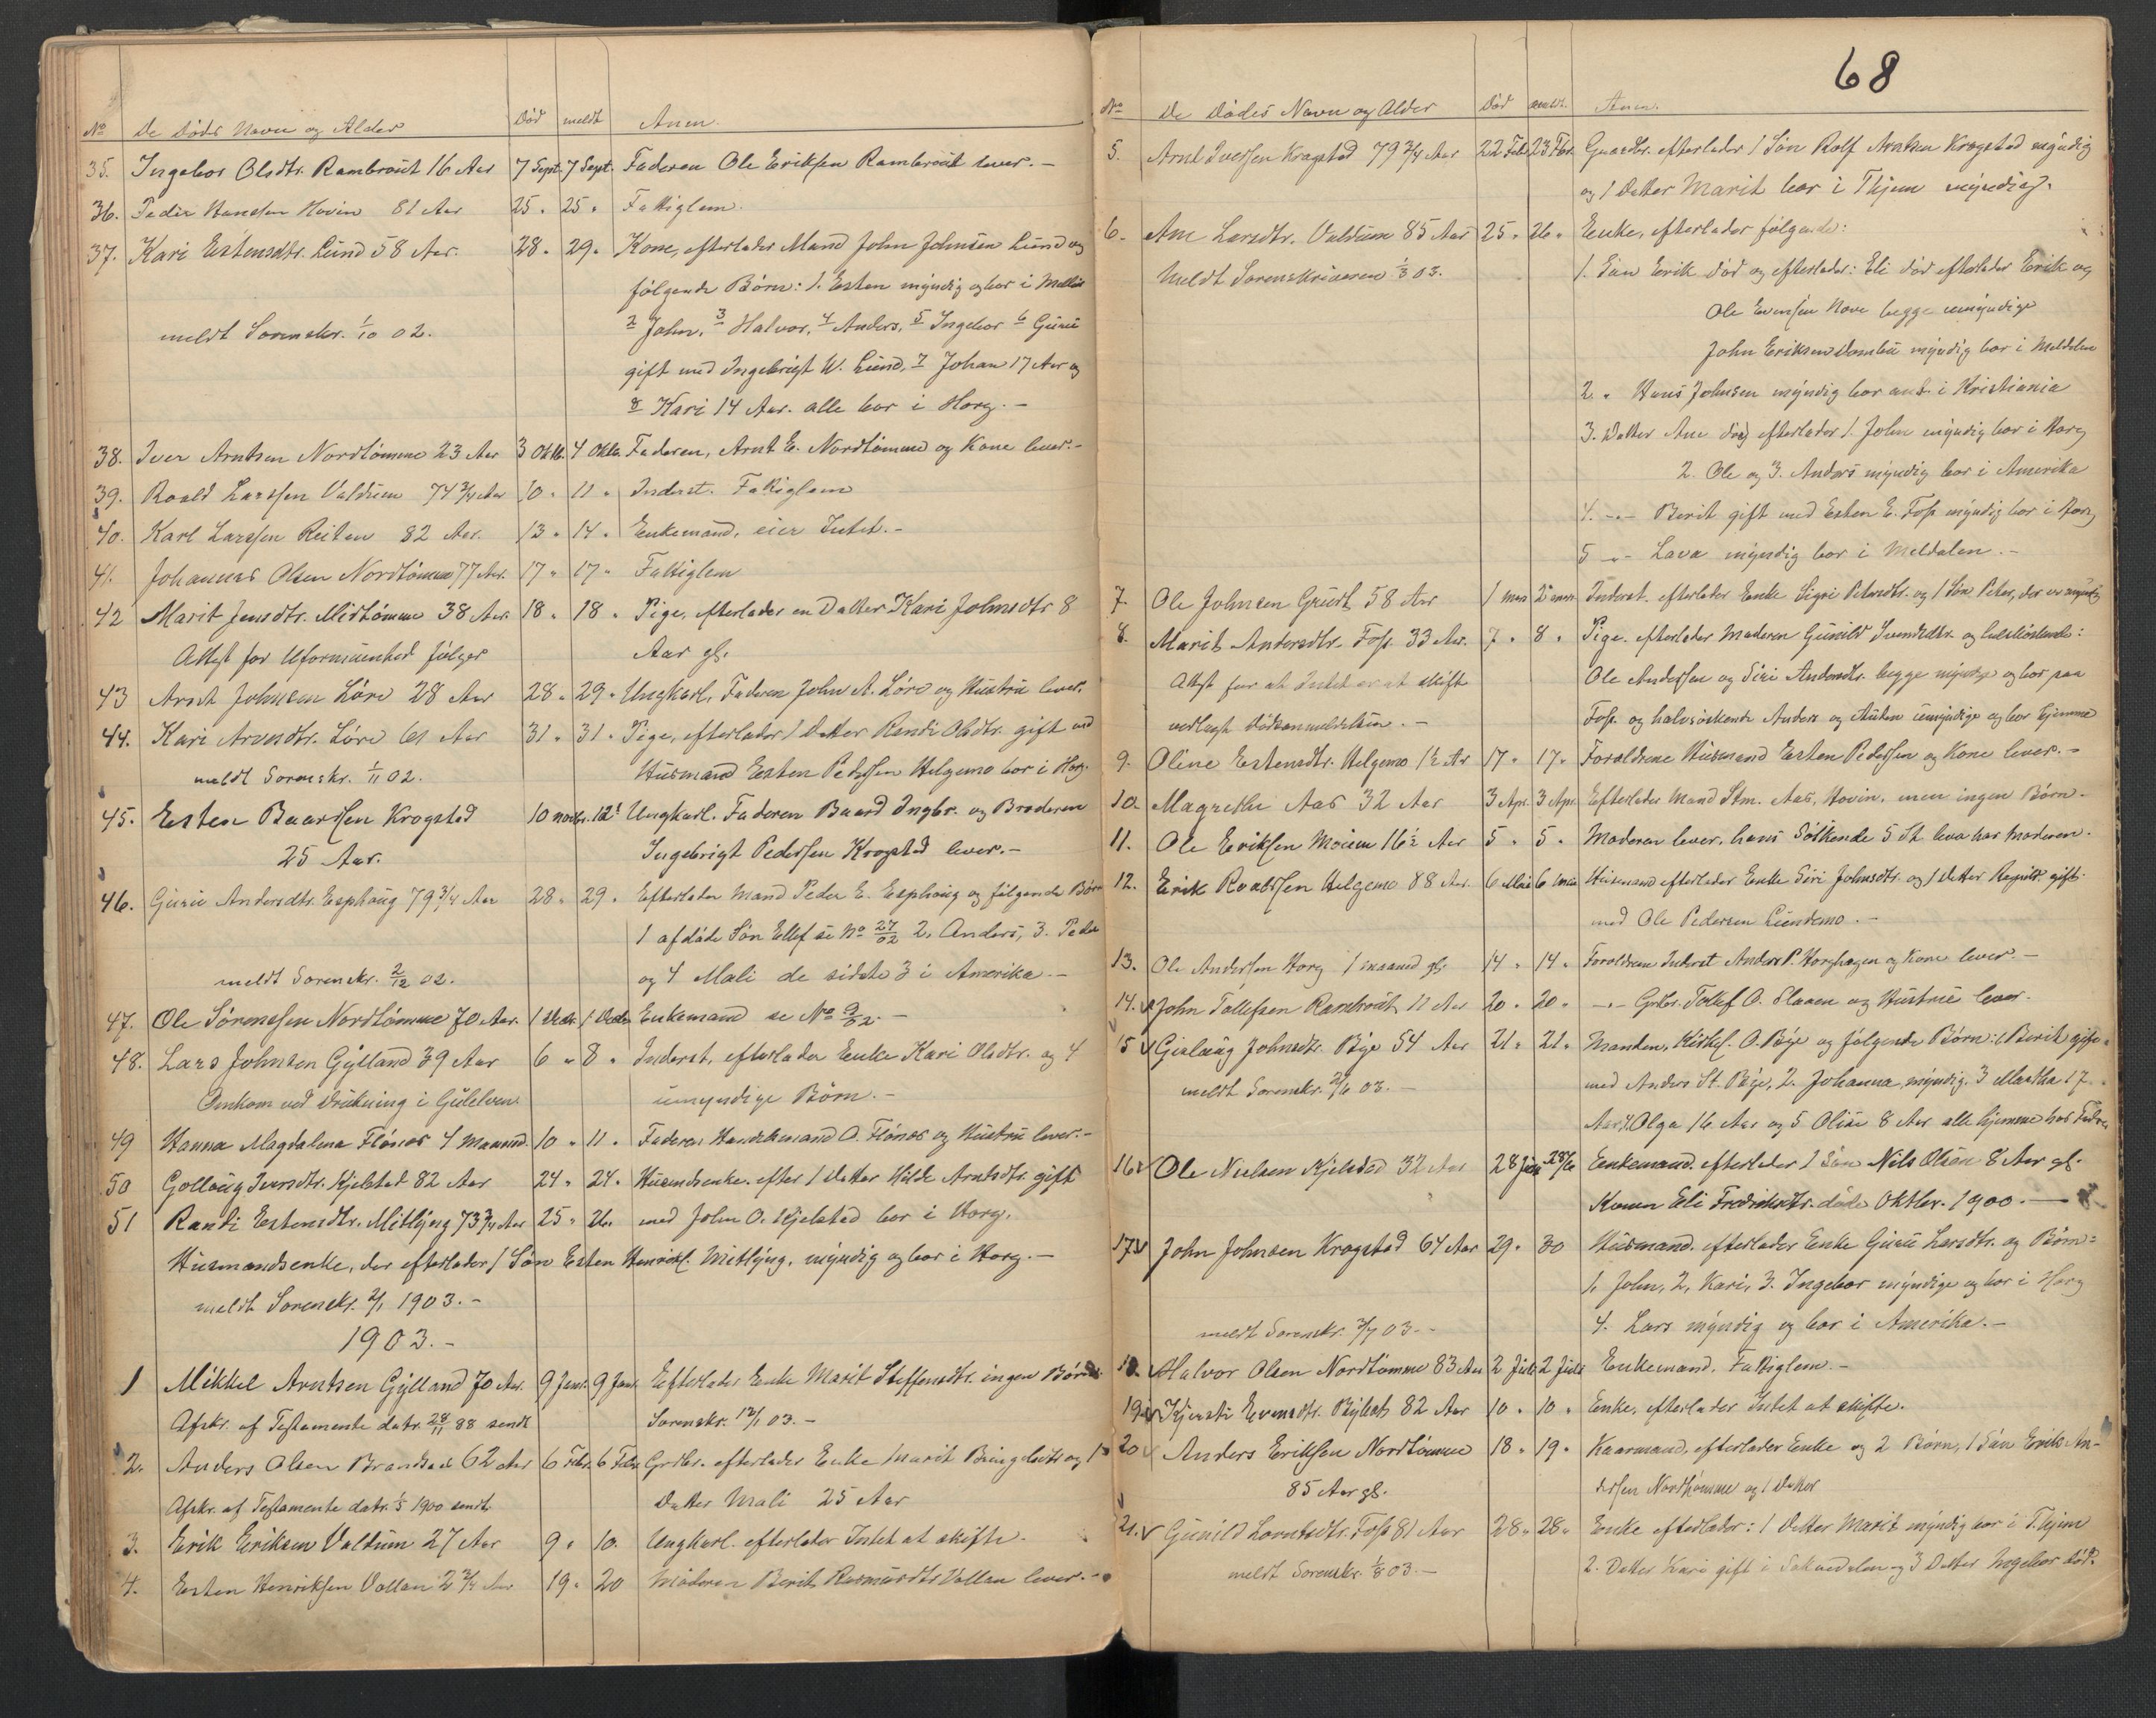 No De Døds Navn og Alder Død meldt Anm.
35. Ingebor Olsdtr. Rambraut 16 Aar 7 Sept. 7 Sept. Faderen Ole Eriksen Rambraut lever. -
36. Peder Hansen Hovin 81 Aar 25 " 25 " Fattiglem.
37. Kari Estensdtr. Lund 58 Aar. 28 " 29 " Kone, efterlader Mand John Johnsen Lund og
følgende Børn: 1. Esten myndig og bor i
meldt Sorenskr. 1/10 02. 2 John, 3 Halvor, 4 Anders, 5 Ingebor 6 Guru
gift med Ingebrigt W. Lund, 7 Johan 17 Aar og
8 Kari 14 Aar. alle bor i Horg. -
38. Iver Arntsen Nordtømme 23 Aar 3 Oktb. 4 Oktb. Faderen, Arnt E. Nordtømme og Kone lever. -
39. Roald Larssen Valdum 74 3/4 Aar 10 " 11 " Inderst. Fattiglem
40. Karl Larssen Reiten 82 Aar. 13 " 14 " Enkemand, eier Intet. -
41. Johannes Olsen Nordtømme 77 Aar. 17 " 17 " Fattiglem
42 Marit Jensdtr. Midtømme 38 Aar. 18 " 18 " Pige, efterlader en Datter Kari Johnsdtr 8
Attest for Uformuenhed følger Aar gl.
43 Arnt Johnsen Løre 28 Aar 28 " 29 " Ungkarl, Faderen John A. Løre og Hustru lever.
44. Kari Arnsdtr. Løre 61 Aar 31 " 31 " Pige, efterlader 1 Datter Randi Olsdtr. gift med
meldt Sorenskr. 1/11 02. Husmand Esten Pedersen Helgemo bor i Horg.
45. Esten Baarssen Krogstad 10 novbr. 12 " Ungkarl. Faderen Baard Ingbr. og Broderen
25 Aar. Ingebrigt Pedersen Krogstad lever. -
46. Guru Andersdtr. Esphaug 79 3/4 Aar 28 " 29 " Efterlader Mand Peder E. Esphaug og følgende Børn
1 afdøde Søn Ellef se No 27/02 2. Anders, 3. Peder
meldt Sorenskr. 2/12 02. og 4 Mali de sidste 3 i Amerika. -
47. Ole Sørensen Nordtømme 70 Aar. 1 Decbr. 1 Decbr Enkemand se No 9/02. -
48. Lars Johnsen Gylland 39 Aar 6 " 8 " Inderst, efterlader Enke Kari Olsdtr. og 4
Omkom ved Drukning i Gulelven umyndige Børn. -
49 Hanna Magdalena Flónes 4 Maaned. 10 " 11 " Faderen Handelsmand O. Flónes og Hustru lever. -
50 Gollaug Iversdtr. Kjelstad 82 Aar 24 " 24 " Husmdsenke. efter 1 Datter Hilde Arntsdtr. gift
51 Randi Estensdtr. Mitlyng 73 3/4 Aar 25 " 26. med John O. Kjelstad bor i Horg.
Husmandsenke, der efterlader 1 Søn Esten Henriks. Mitlyng, myndig og bor i Horg. -
meldt Sorenskr. 2/1 1903. -
1903. -
1 Mikkel Arntsen Gylland 70 Aar. 9 Janr. 9 Janr. Efterlader Enke Marit Steffensdtr. ingen Børn
Afskr. af Testamente datr. 28/11 88 sendt Sorenskr. 12/1 03. -
2. Anders Olsen Brandsa 62 Aar 6 Febr. 6 Febr. Grdbr. efterlader Enke Marit og 1
Afskr. af Testamente datr. 1/5 1900 sendt. Datter Mali 25 Aar
3. Erik Eriksen Valdum 27 Aar 9 " 10. Ungkarl. efterlader Intet at skifte.
4. Esten Henriksen Vollan 2 3/4 Aar 19 " 20 Moderen Berit Rasmusdtr Vollan lever. -
68
No De Dødes Navn og Alder Død meldt. Anm.
5. Arnt Iversen Krogstad 79 3/4 Aar 22 Feb 23 Fbr. Gaardbr. efterlader 1 Søn Rolf Arntsen Krogstad myndig
og 1 Datter Marit bor i Thjem myndig.
6. Ane Larsdtr. Valdum 85 Aar 25 " 26 " Enke, efterlader følgende:
Meldt Sorenskriveren 1/3 03. 1. Søn Erik død og efterlader: Eli død efterlader Erik og
Ole Evensen Hove begge umyndige
John Eriksen Dombu myndig bor i Meldalen
2. " Hans Johnsen myndig bor ant. i Kristiania
3. Datter Ane død efterlader 1. John myndig bor i Horg
2. Ole og 3. Anders myndig bor i Amerika
4. -"- Berit gift med Esten E. Foss myndig bor i Horg
5 -"- Lava myndig bor i Meldalen. -
7. Ole Johnsen Grust 58 Aar 1 mars 2 mars. Inderst. efterlader Enke Sigri Petersdtr. og 1 Søn Peter, der er myndig
8. Marit Andersdtr. Foss 33 Aar. 7 " 8 " Pige. efterlader Moderen Gunild Svendsdtr. og helsøskende:
Attest for at Intet er at skifte Ole Anderssen og Siri Andersdtr. begge myndige og bor paa
vedlagt dødsanmeldelsen. - Foss. og halvsøskende Anders og umyndige og bor hjemme
9. Oline Estensdtr. Helgemo 1 1/2 Ar 17 " 17 " Forældrene Husmand Esten Pedersen og Kone lever. -
10. Magrethe Aas 32 Aar 3 Apr. 3 Apr. Efterlader Mand Stm. Aas, Hovin. men ingen Børn.
11. Ole Eriksen Moum 16 1/2 Aar 5 " 5 " Moderen lever, hans Søskende 5 St. leva hos moderen.
12. Erik Roaldsen Helgemo 88 Aar. 6 Mai 6 Mai Husmand efterlader Enke Siri Johnsdtr. og 1 datter gift
med Ole Pedersen Lundemo. -
13. Ole Andersen Horg 1 maaned gl. 14 " 14 " Forældrene Inderst Anders P. Horghagen og Kone lever. -
14. John Tollefsen Rambraut 11 Aar 20 " 20 " -"- Grdbr. Tollef O. Slaaen og Hustru lever.
15 Gislaug Johnsdtr. Bøje 54 Aar 21 " 21 " Manden, O. Bøje og følgende Børn: 1 Berit gift
meldt Sorenskr. 2/6 03. - med Anders St. Bøje, 2. Johanna, myndig. 3 Martha 17
Aar 4. Olga 16 Aar og 5 Oline 8 Aar alle hjemme hos Faderen
16 Ole Nielsen Kjelstad 32 Aar 28 Juni 28/6 Enkemand. efterlader 1 Søn Nils Olsen 8 Aar gl.
Konen Eli Fredriksdtr. døde Oktbr. 1900. -
17 John Johnsen Krogstad 64 Aar 29 " 30 Husmand. efterlader Enke Guru Larsdtr. og Børn:
1. John, 2, Kari, 3. Ingebor myndige og bor i Horg
meldt Sorenskr. 2/7 03. - 4. Lars myndig og bor i Amerika. -
18. Halvor Olsen Nordtømme 83 Aar 2 Juli 2 Juli Enkemand. Fattiglem. -
19. Kjersti Evensdtr. 82 Aar 10 " 10 " Enke, efterlader Intet at skifte.
20 Anders Eriksen Nordtømme 18 " 19 " Kaarmand. efterlader Enke og 2 Børn, 1 Søn Erik An-
85 Aar gl. dersen Nordtømme og 1 Datter
21. Gunild Larntsdtr. Foss 81 Aar 28 " 28 " Enke efterlader: 1 Datter Marit myndig bor i Thjem
meldt Sorenskr. 1/8 03. - 2. Datter Kari gift i og 3 Datter Ingebor død.